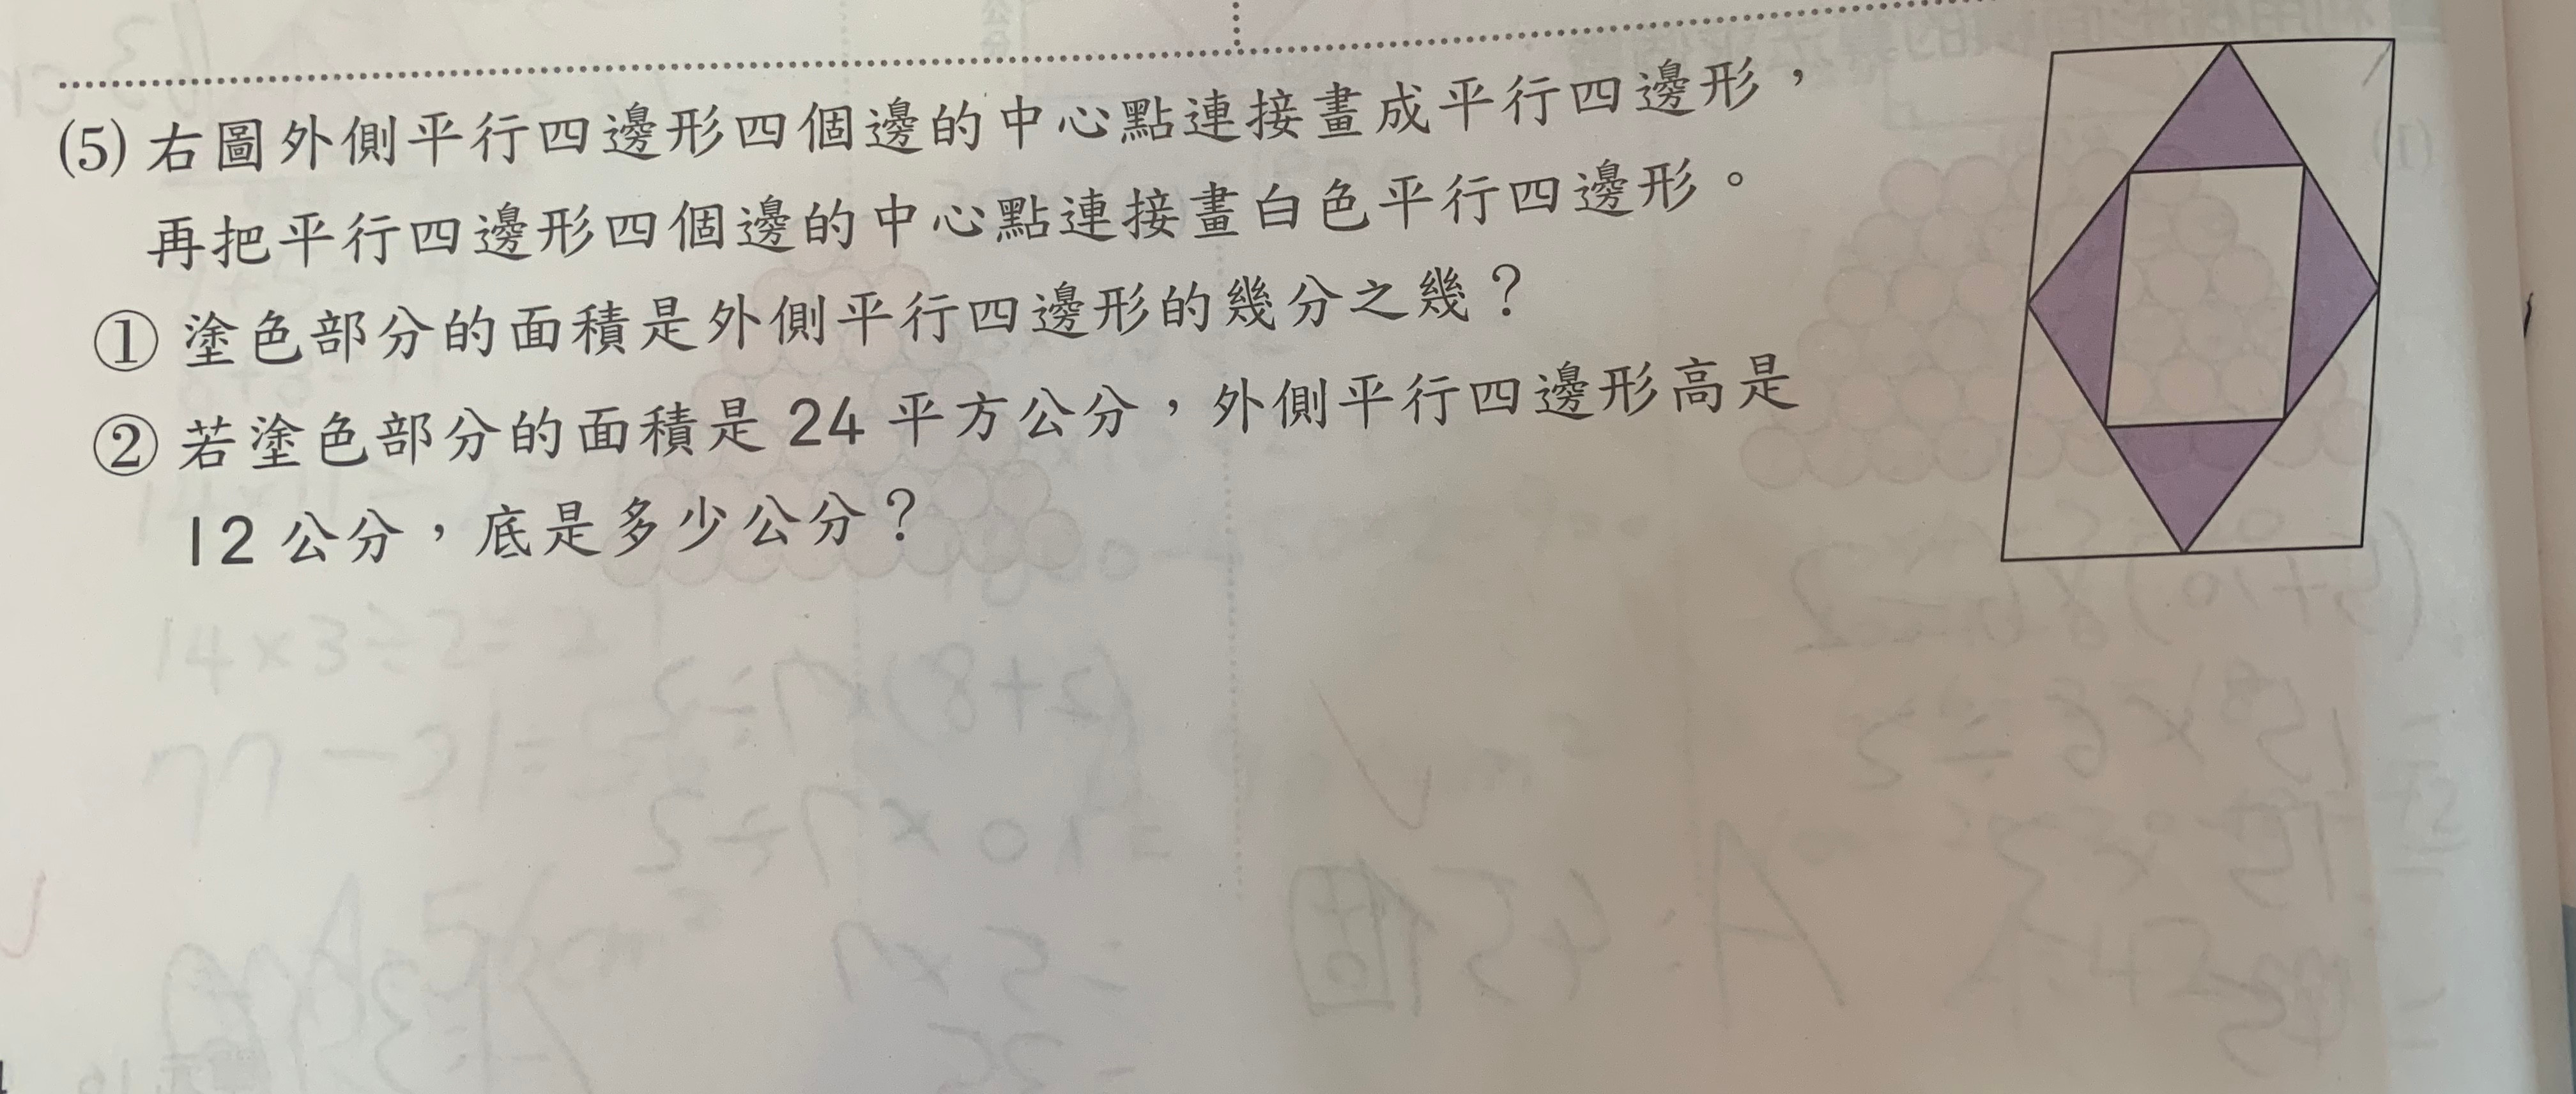 (5) 右圖外側平行四邊形四個邊的中心點連接畫成平行四邊形，
再把平行四邊形四個邊的中心點連接畫白色平行四邊形。
① 塗色部分的面積是外側平行四邊形的幾分之幾？
② 若塗色部分的面積是 24 平方公分，外側平行四邊形高是
12 公分，底是多少公分？